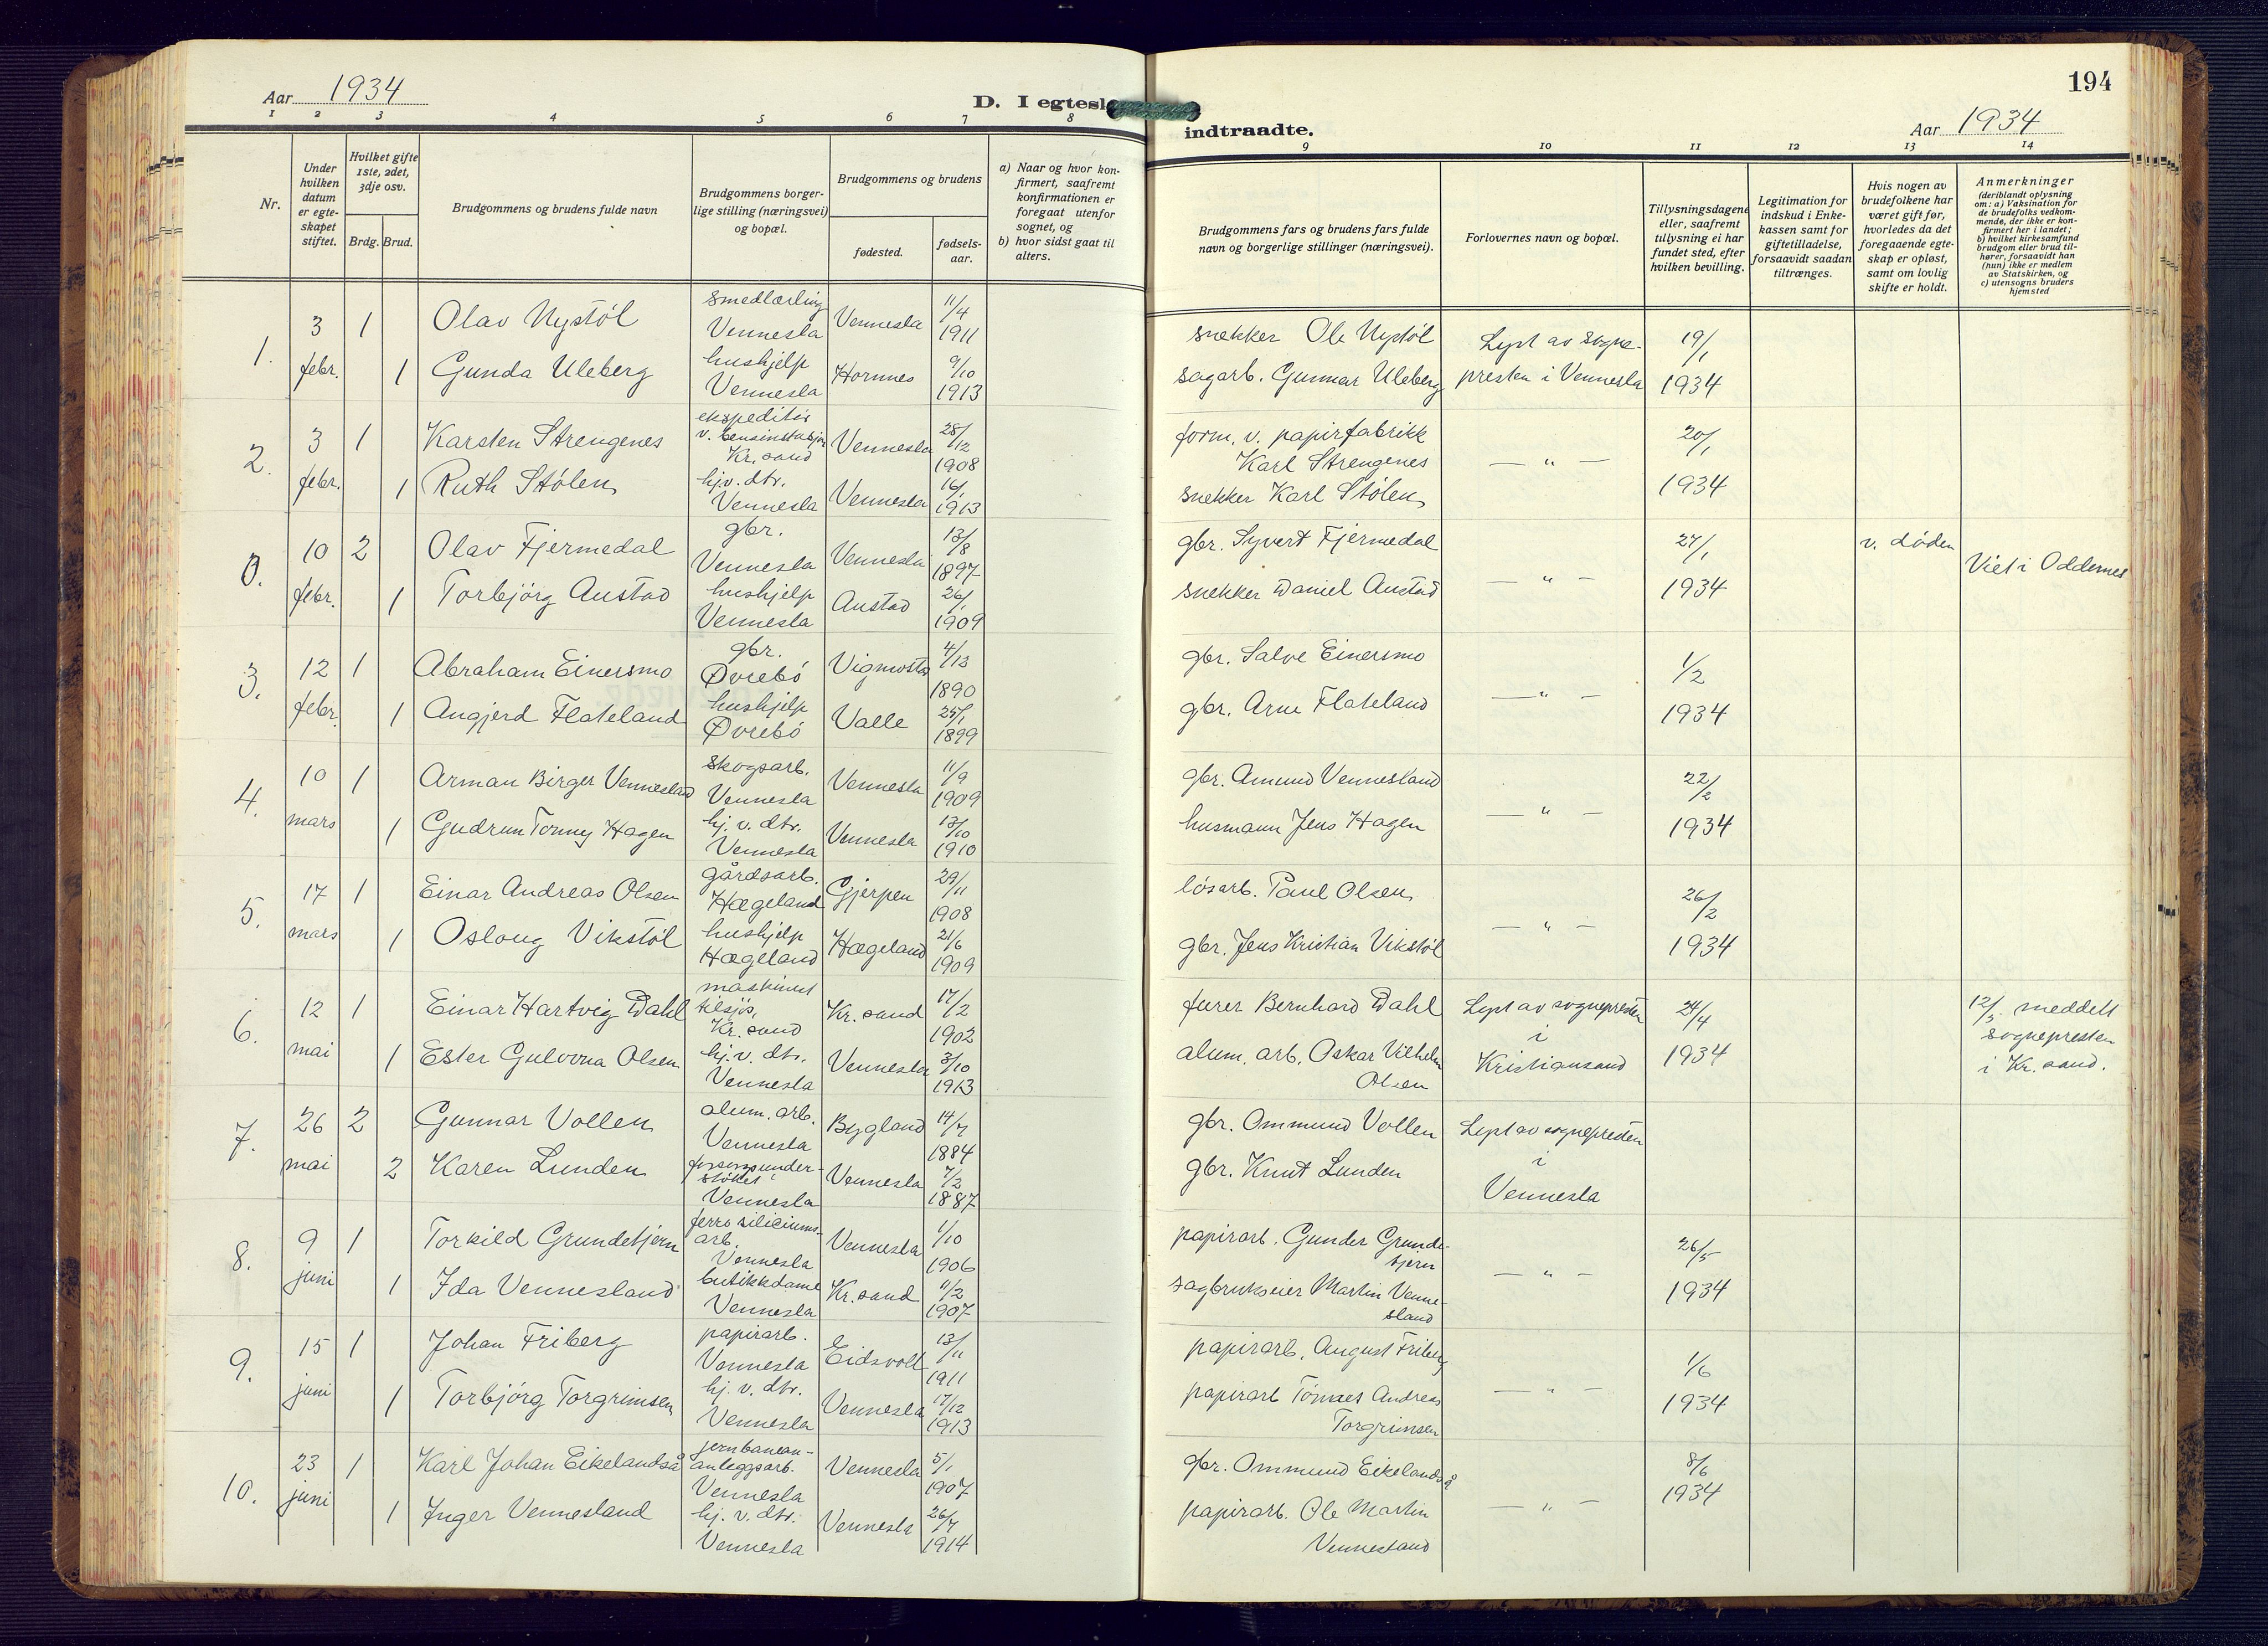 Aar 1934
D. I egtesk
1 2 3 4 5 6 7 8
Nr.
Under hvilken datum er egteskapet stiftet.
Hvilket gifte 1ste, 2det, 3dje osv.
Brdg. Brud.
Brudgommens og brudens fulde navn
Brudgommens borgerlige stilling (næringsvei) og bopæl.
Brudgommens og brudens
fødested.
fødselsaar.
a) Naar og hvor konfirmert, saafremt konfirmationen er foregaat utenfor sognet, og
b) hvor sidst gaat til alters.
1. 3 febr. 1 Olav Nystøl smedlærling Vennesla Vennesla 11/4 1911
1 Gunda Uleberg hushjelp Vennesla Hornnes 9/10 1913
2. 3 febr. 1 Karsten Strengenes ekspeditør v. bensinstasjon Kr.sand Vennesla 28/12 1908
1 Ruth Stølen hj.v. dtr. Vennesla Vennesla 16/1 1913
0. 10 febr. 2 Olav Fjermedal gbr. Vennesla Vennesla 13/8 1897
1 Torbjörg Austad hushjelp Vennesla Austad 26/1 1909
3. 12 febr. 1 Abraham Einersmo gbr. Øvrebö Vigmostad 4/13 1890
1 Angjerd Flateland hushjelp Øvrebö Valle 25/1 1899
4. 10 mars 1 Arman Birger Vennesland skogsarb. Vennesla Vennesla 11/9 1909
1 Gudrun Tonny Hagen hj. v. dtr. Vennesla Vennesla 13/10 1910
5. 17 mars 1 Einar Andreas Olsen gårdsarb. Hægeland Gjerpen 29/11 1908
1 Oslaug Vikstøl hushjelp Hægeland Hægeland 21/6 1909
6. 12 mai 1 Einar Hartvig Dahl maskinist tilsjøs, Kr. sand Kr. sand 17/2 1902
1 Ester Gulovna Olsen hj.v. dtr. Vennesla Vennesla 3/10 1913
7. 26 mai 2 Gunnar Vollen alum. arb. Vennesla Bygland 14/7 1884
2 Karen Lunden Vennesla Vennesla 7/2 1887
8. 9 juni 1 Torkild Grundetjern ferrosiliciums arb. Vennesla Vennesla 1/10 1906
1 Ida Vennesland butikkdame Vennesla Kr. sand 11/2 1907
9. 15 juni 1 Johan Friberg papirarb. Vennesla Eidsvoll 13/11 1911
1 Torbjörg Torgrimsen hj. v. dtr. Vennesla Vennesla 17/12 1913
10. 23 juni 1 Karl Johan Eikelandså jernbanean-anleggsarb. Vennesla Vennesla 5/1 1907
1 Inger Vennesland hj. v. dtr. Vennesla Vennesla 26/7 1914
194
indtraadte.
Aar 1934
9 10 11 12 13 14
Brudgommens fars og brudens fars fulde navn og borgerlige stillinger (næringsvei).
Forlovernes navn og bopæl.
Tillysningsdagene eller, saafremt tillysning ei har fundet sted, efter hvilken bevilling.
Legitimation for indskud i Enkekassen samt for giftetilladelse, forsaavidt saadan tiltrænges.
Hvis nogen av brudefolkene har været gift før, hvorledes da det foregaaende egteskap er opløst, samt om lovlig skifte er holdt.
Anmerkninger (deriblandt oplysning om: a) Vaksination for de brudefolks vedkommende, der ikke er konfirmert her i landet; b) hvilket kirkesamfund brudgom eller brud tilhører, forsaavidt han (hun) ikke er medlem av Statskirken, og c) utensogns bruders hjemsted
snekker Ole Nystøl Lyst av sogne- 19/1
sagarb. Gunnar Uleberg presten i Vennesla 1934
form. v. papirfabrikk 20/1
Karl Strengenes — " —
snekker Karl Stølen 1934
gbr. Syvert Fjermedal 27/1 v. døden
— " — Viet i Oddernes
snekker Daniel Austad 1934
gbr. Salve Einersmo 1/2
— " —
gbr. Arne Flateland 1934
gbr. Amund Vennesland 22/2
— " —
husmann Jens Hagen 1934
løsarb. Paul Olsen 26/2
— " —
gbr. Jens Kristian Vikstøl 1934
furer Bernhard Dahl Lyst av sognepresten 24/4 12/5 meddelt
i sognepresten
alum. arb. Oskar Vilhelm Kristiansand 1934 i Kr. sand.
Olsen
gbr. Ommund Vollen Lyst av sognepresten
i
gbr. Knut Lunden Vennesla
papirarb. Gunder Grunde- 26/5
tjern — " —
sagbrukseier Martin Venne- 1934
sland
papirarb. August Friberg 1/6
— " —
papirarb Tönnes Andreas 1934
Torgrimsen
gbr. Ommund Eikelandså 8/6
— " — 1934
papirarb. Ole Martin
Vennesland